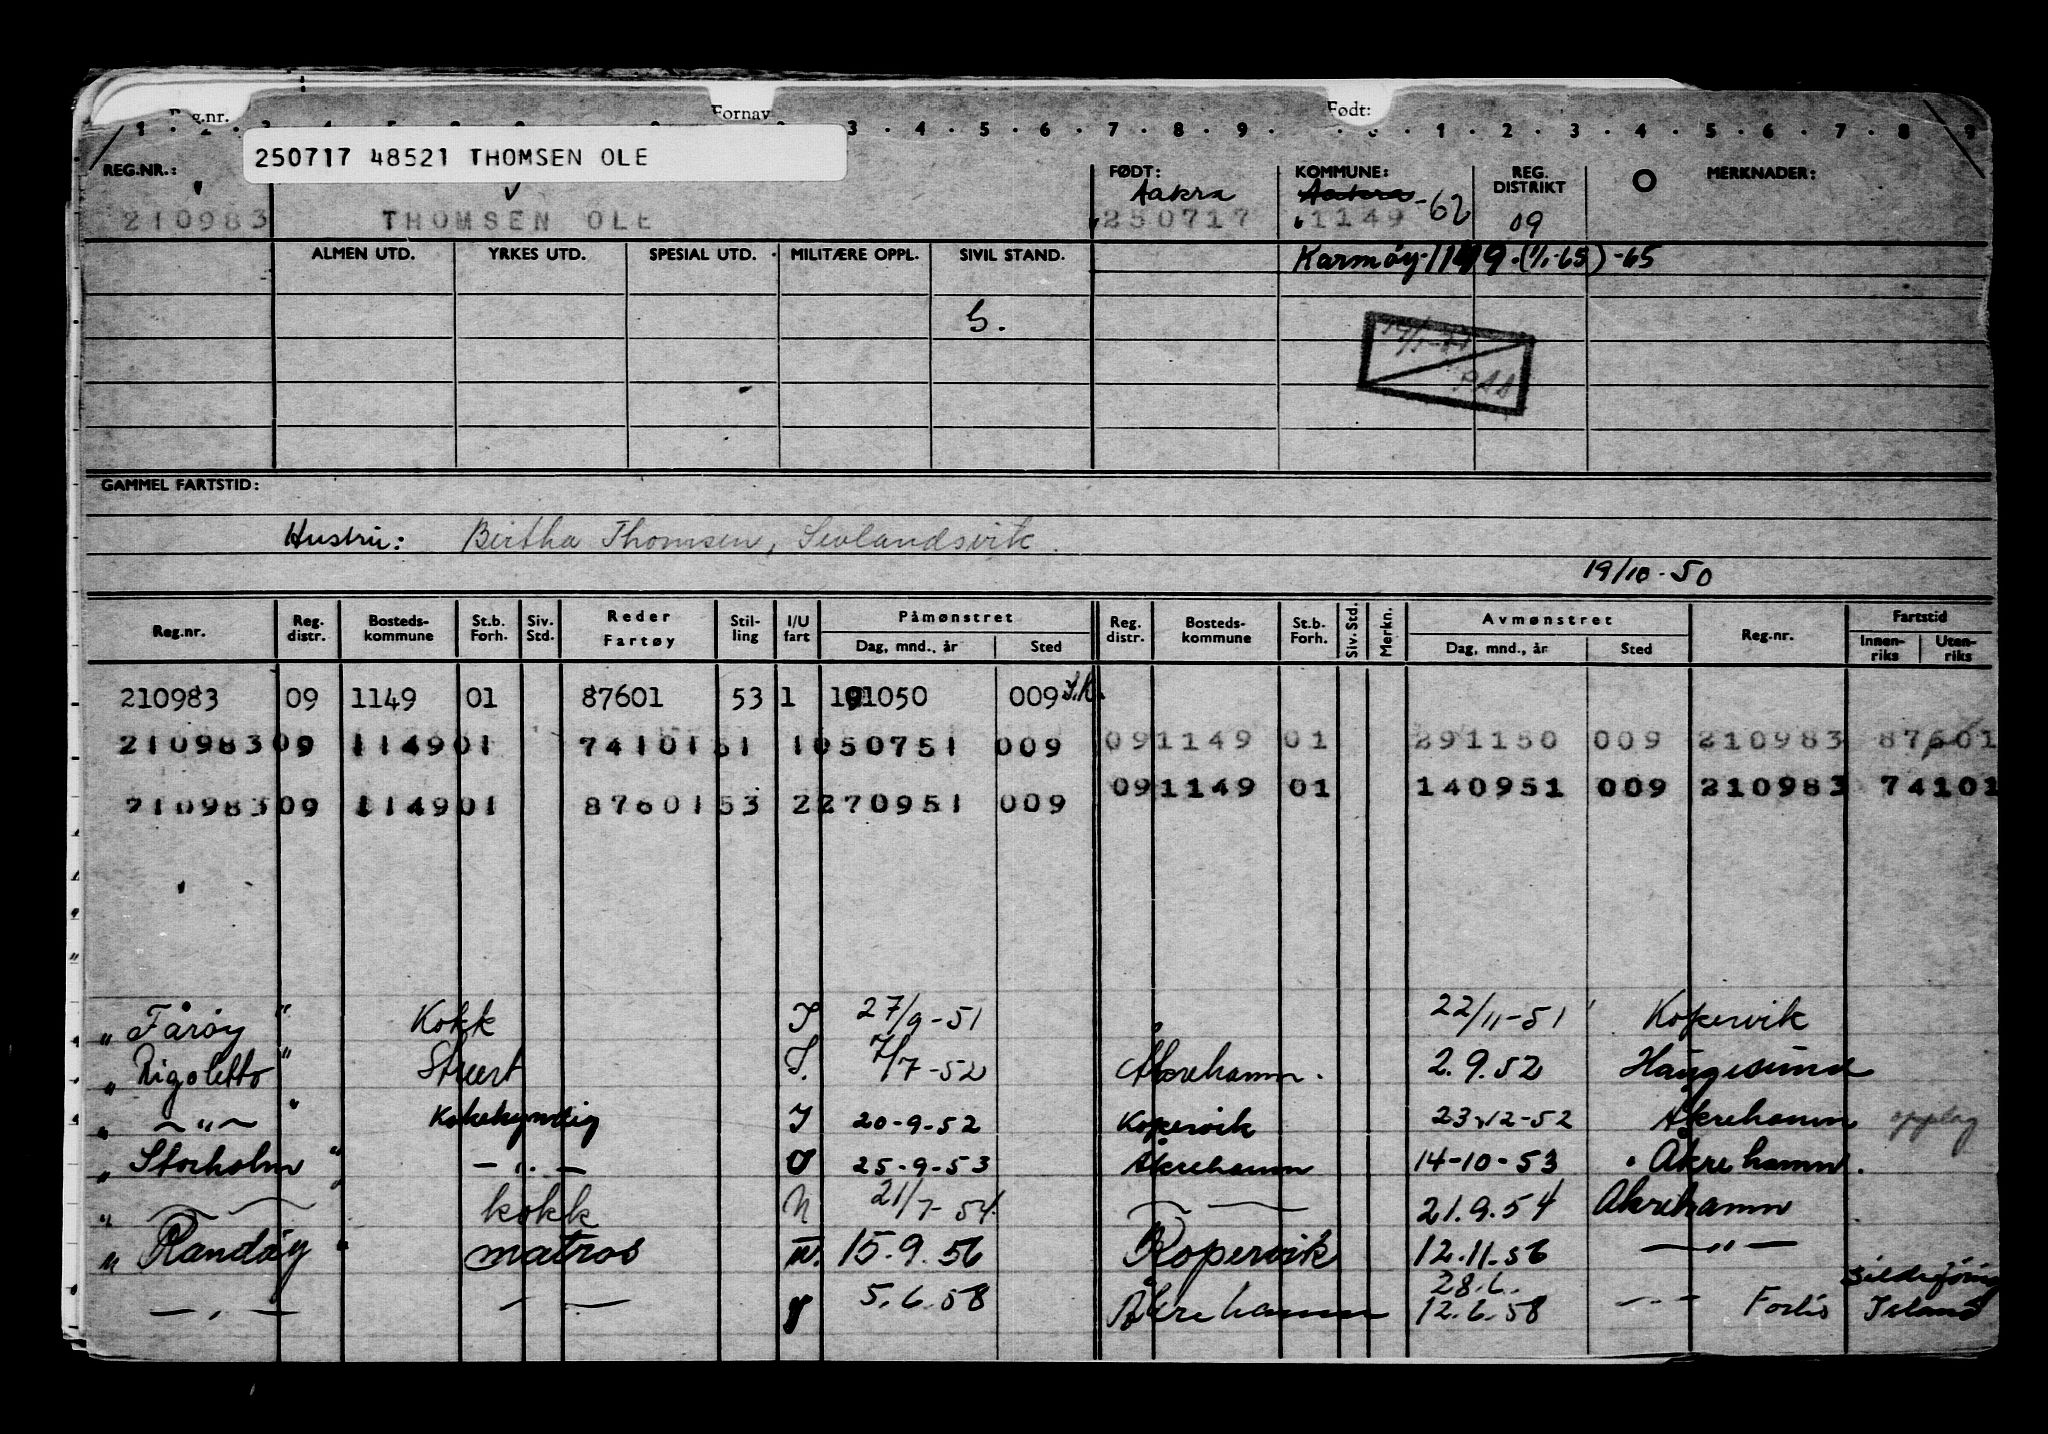 g.nr. Fornav Født:
1 . 2 . 3 3 . 4 . 5 . 6 . 7 . 8 . 9 . 1 . 2 . 3 . 4 . 5 . 6 . 7 . 8 . 9
250717 48521 THOMSEN OLE
REG.NR.: FØDT: KOMMUNE: REG. DISTRIKT O MERKNADER:
Aakra Aakra
210983 THOMSEN OLE 250717 1149 -62 09
ALMEN UTD. YRKES UTD. SPESIAL UTD. MILITÆRE OPPL. SIVIL STAND. Karmøy-1149.(1/1-65)-65
G.
GAMMEL FARTSTID:
Hustru: Birtha Thomsen, Sevlandsvik.
19/10-50
Reg.nr. Reg. distr. Bosteds- kommune St.b. Forh. Siv. Std. Reder Fartøy Stil- ling I/U fart Påmønstret Reg. distr. Bosteds- kommune St.b. Forh. Siv. Std. Merkn. Avmønstret Reg.nr. Fartstid
Dag, mnd., år Sted Dag, mnd., år Sted Innen- riks Uten- riks
210983 09 1149 01 87601 53 1 191050 009
210983 09 1149 01 74101 51 1 050751 009 09 1149 01 291150 009 210983 87601
210983 09 1149 01 87601 53 2 270951 009 09 1149 01 140951 009 210983 74101
" Fårøy " Kokk I 27/9-51 22/11-51 Kopervik
" Rigoletto " Stuert 7/7-52 Åkrehamn. 2.9.52 Haugesund
" — " — " Kokekyndig I 20-9-52 Kopervik 23-12-52 Åkrehamn opplag
" Storholm " — " — 25-9-53 Åkrehamn 14-10-53 Åkrehamn.
" kokk 21/7-54 21.9.54 Åkrehamn
" Randøy " matros 15.9.56 Kopervik 12.11.56 — " —
— " — — — 5.6.58 Åkrehamn 28.6. 12.6.58 — " — Fortis Sildefiring Island